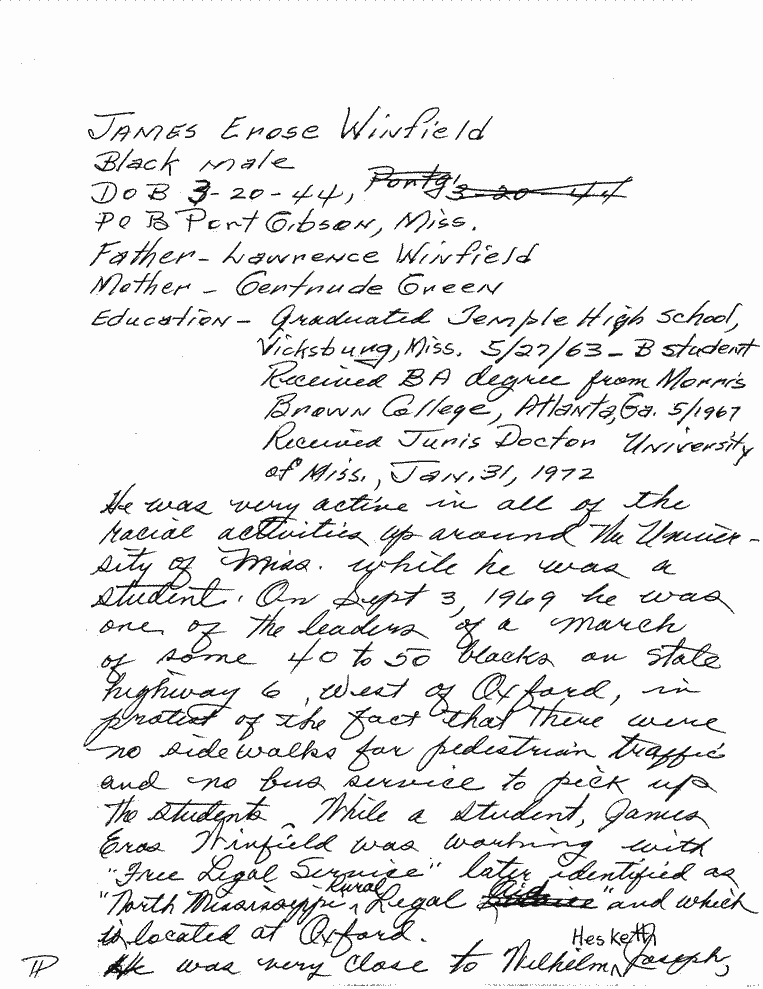 JAMES Erose Winfield
Black male
DOB 3-20-44, Pontg 3-20-44
POB Port Gibson, Miss.
Father - Lawrence Winfield
Mother - Gertrude Green
Education - Graduated Temple High School,
Vicksburg, Miss. 5/27/63 - B student
Received BA degree from Morris
Brown College, Atlanta, Ga. 5/1967
Received Juris Doctor University
of Miss., Jan. 31, 1972
He was very active in all of the
racial activities up around the Univer-
sity of Miss. while he was a
student. On Sept 3, 1969 he was
one of the leaders of a march
of some 40 to 50 blacks on state
highway 6, west of Oxford, in
protest of the fact that there were
no sidewalks for pedestrian traffic
and no bus service to pick up
the students. While a student, James
Eros Winfield was working with
"Free Legal Service" later identified as
"North Mississippi Rural Legal" and which
is located at Oxford.
He was very close to Wilhelm Hesketh Joseph,